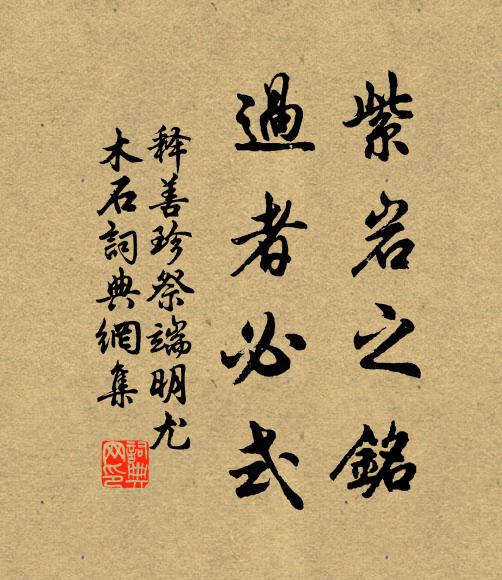 紫岩之銘
過者必式
释善珍祭端明尤
木石詞典網集
詞典
网印